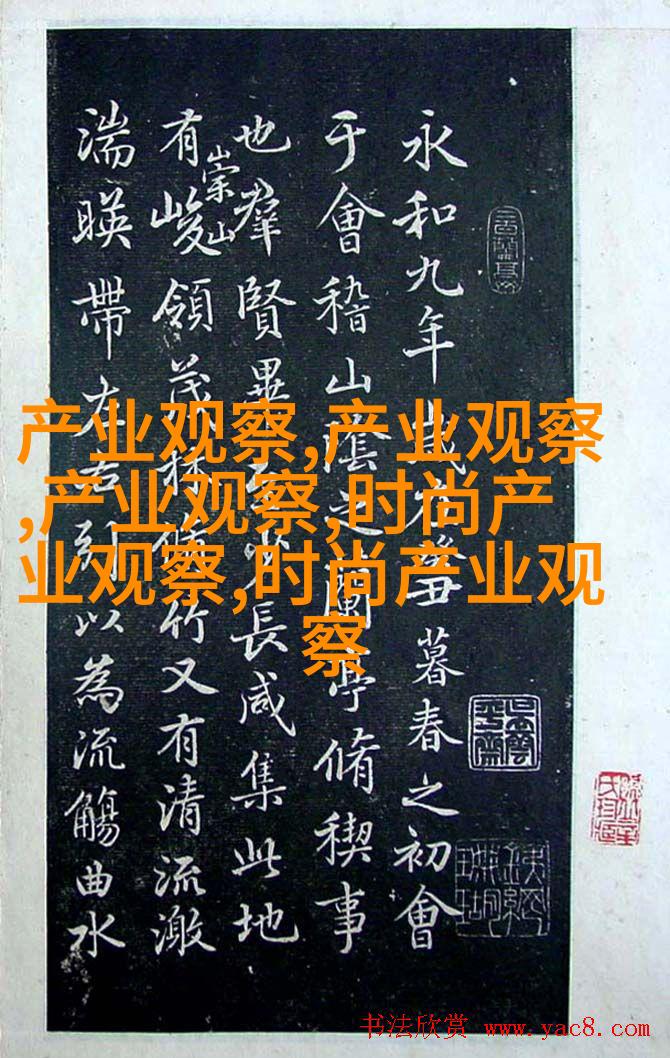 永和九年歲在癸丑暮春之初會
于會稽山陰之蘭亭脩稧事
也羣賢畢至少長咸集此地
有崇山峻領茂林脩竹又有清流激
湍暎帶左右引以為流觴曲水
产业观察,产业观察
,产业观察,时尚产
业观察,时尚产业观
察
书法欣赏 www.yac8.com